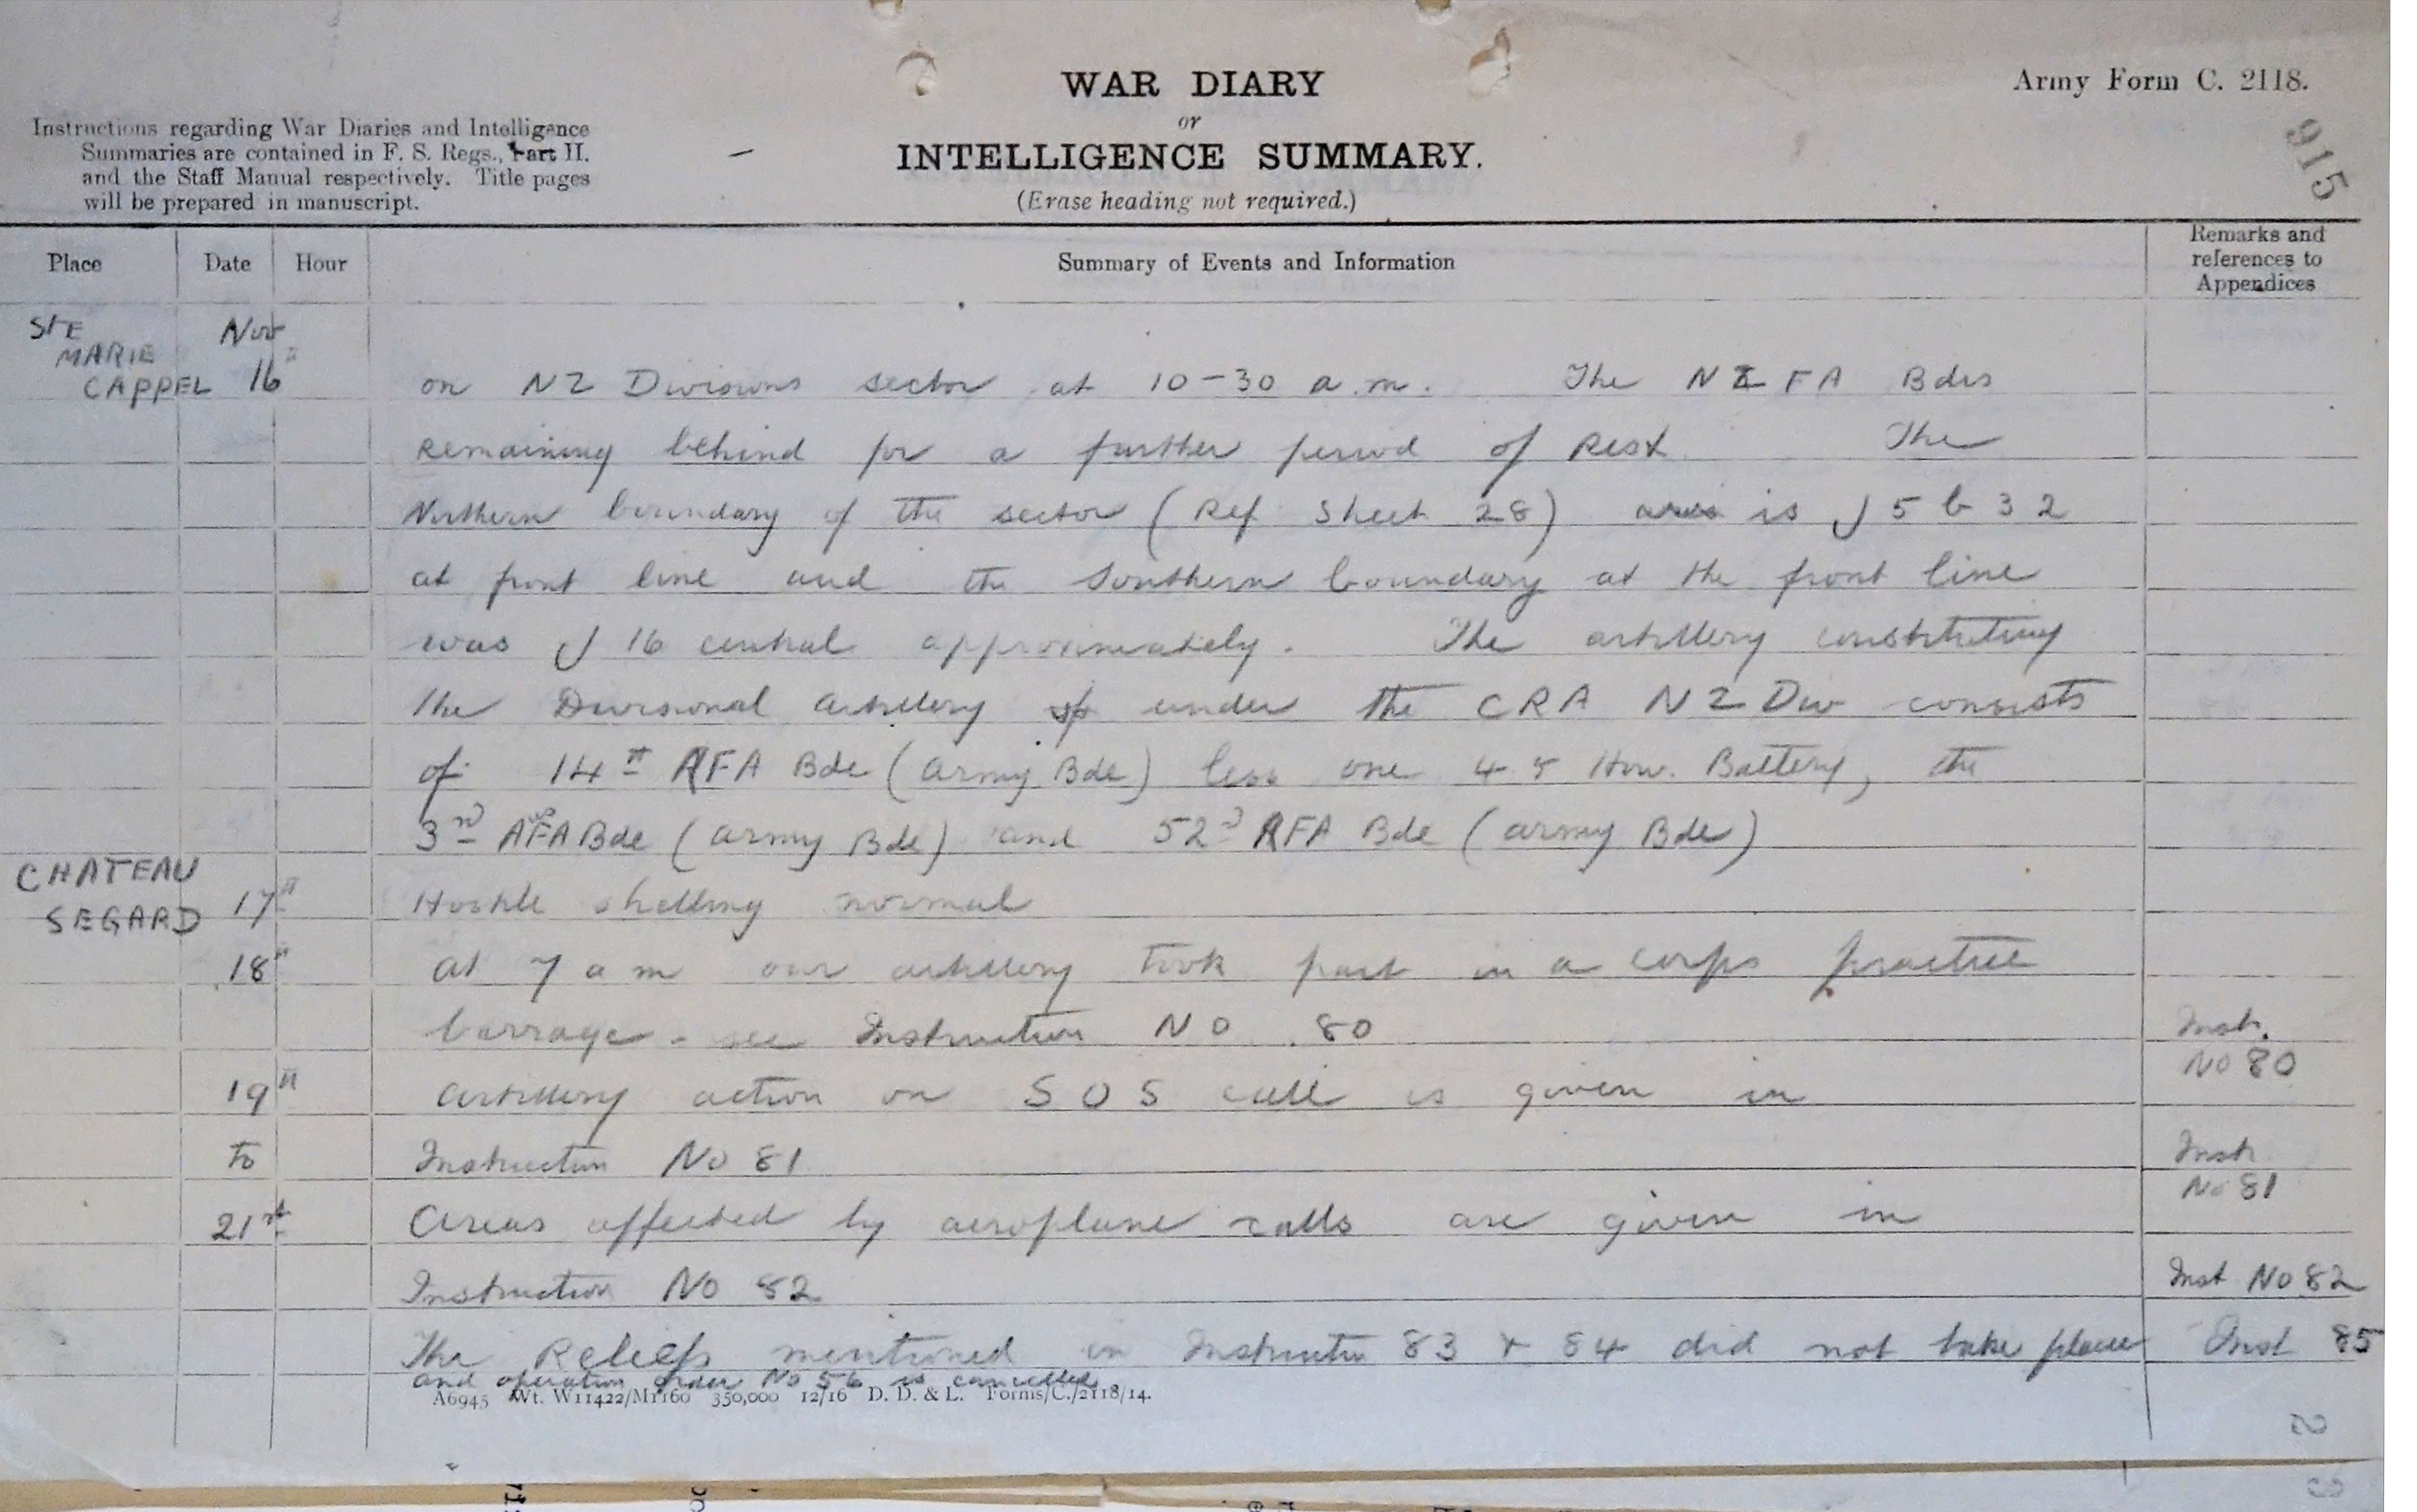 WAR DIARY
or
INTELLIGENCE SUMMARY.
(Erase heading not required.)
Army Form C. 2118.
915
Instructions regarding War Diaries and Intelligence
Summaries are contained in F. S. Regs., Part II.
and the Staff Manual respectively. Title pages
will be prepared in manuscript.
Place Date Hour Summary of Events and Information Remarks and references to Appendices
STE MARIE CAPPEL Nov
16th on NZ Divisions sector at 10-30 a.m. The NZ FA Bdes
remaining behind for a further period of Rest. The
Northern boundary of the sector (Ref Sheet 28) is J 5 b 3 2
at front line and the Southern boundary at the front line
was J 16 central approximately. The artillery constituting
the Divisional Artillery under the CRA NZ Div consists
of 14th RFA Bde (Army Bde) less one 4.5 How. Battery, the
3rd AFA Bde (Army Bde) and 52nd RFA Bde (Army Bde)
CHATEAU
SEGARD 17th Hostile shelling normal
18th At 7 am our artillery took part in a corps practice
barrage - see Instruction NO. 80 Inst. No 80
19th Artillery action on SOS call is given in
to Instruction No 81 Inst No 81
21st Areas affected by aeroplane calls are given in
Instruction No 82 Inst No 82
The Reliefs mentioned in Instructn 83 & 84 did not take place Inst 85
and operation order No 56 is cancelled
A6945 Wt. W11422/M1160 350,000 12/16 D. D. & L. Forms/C./2118/14.